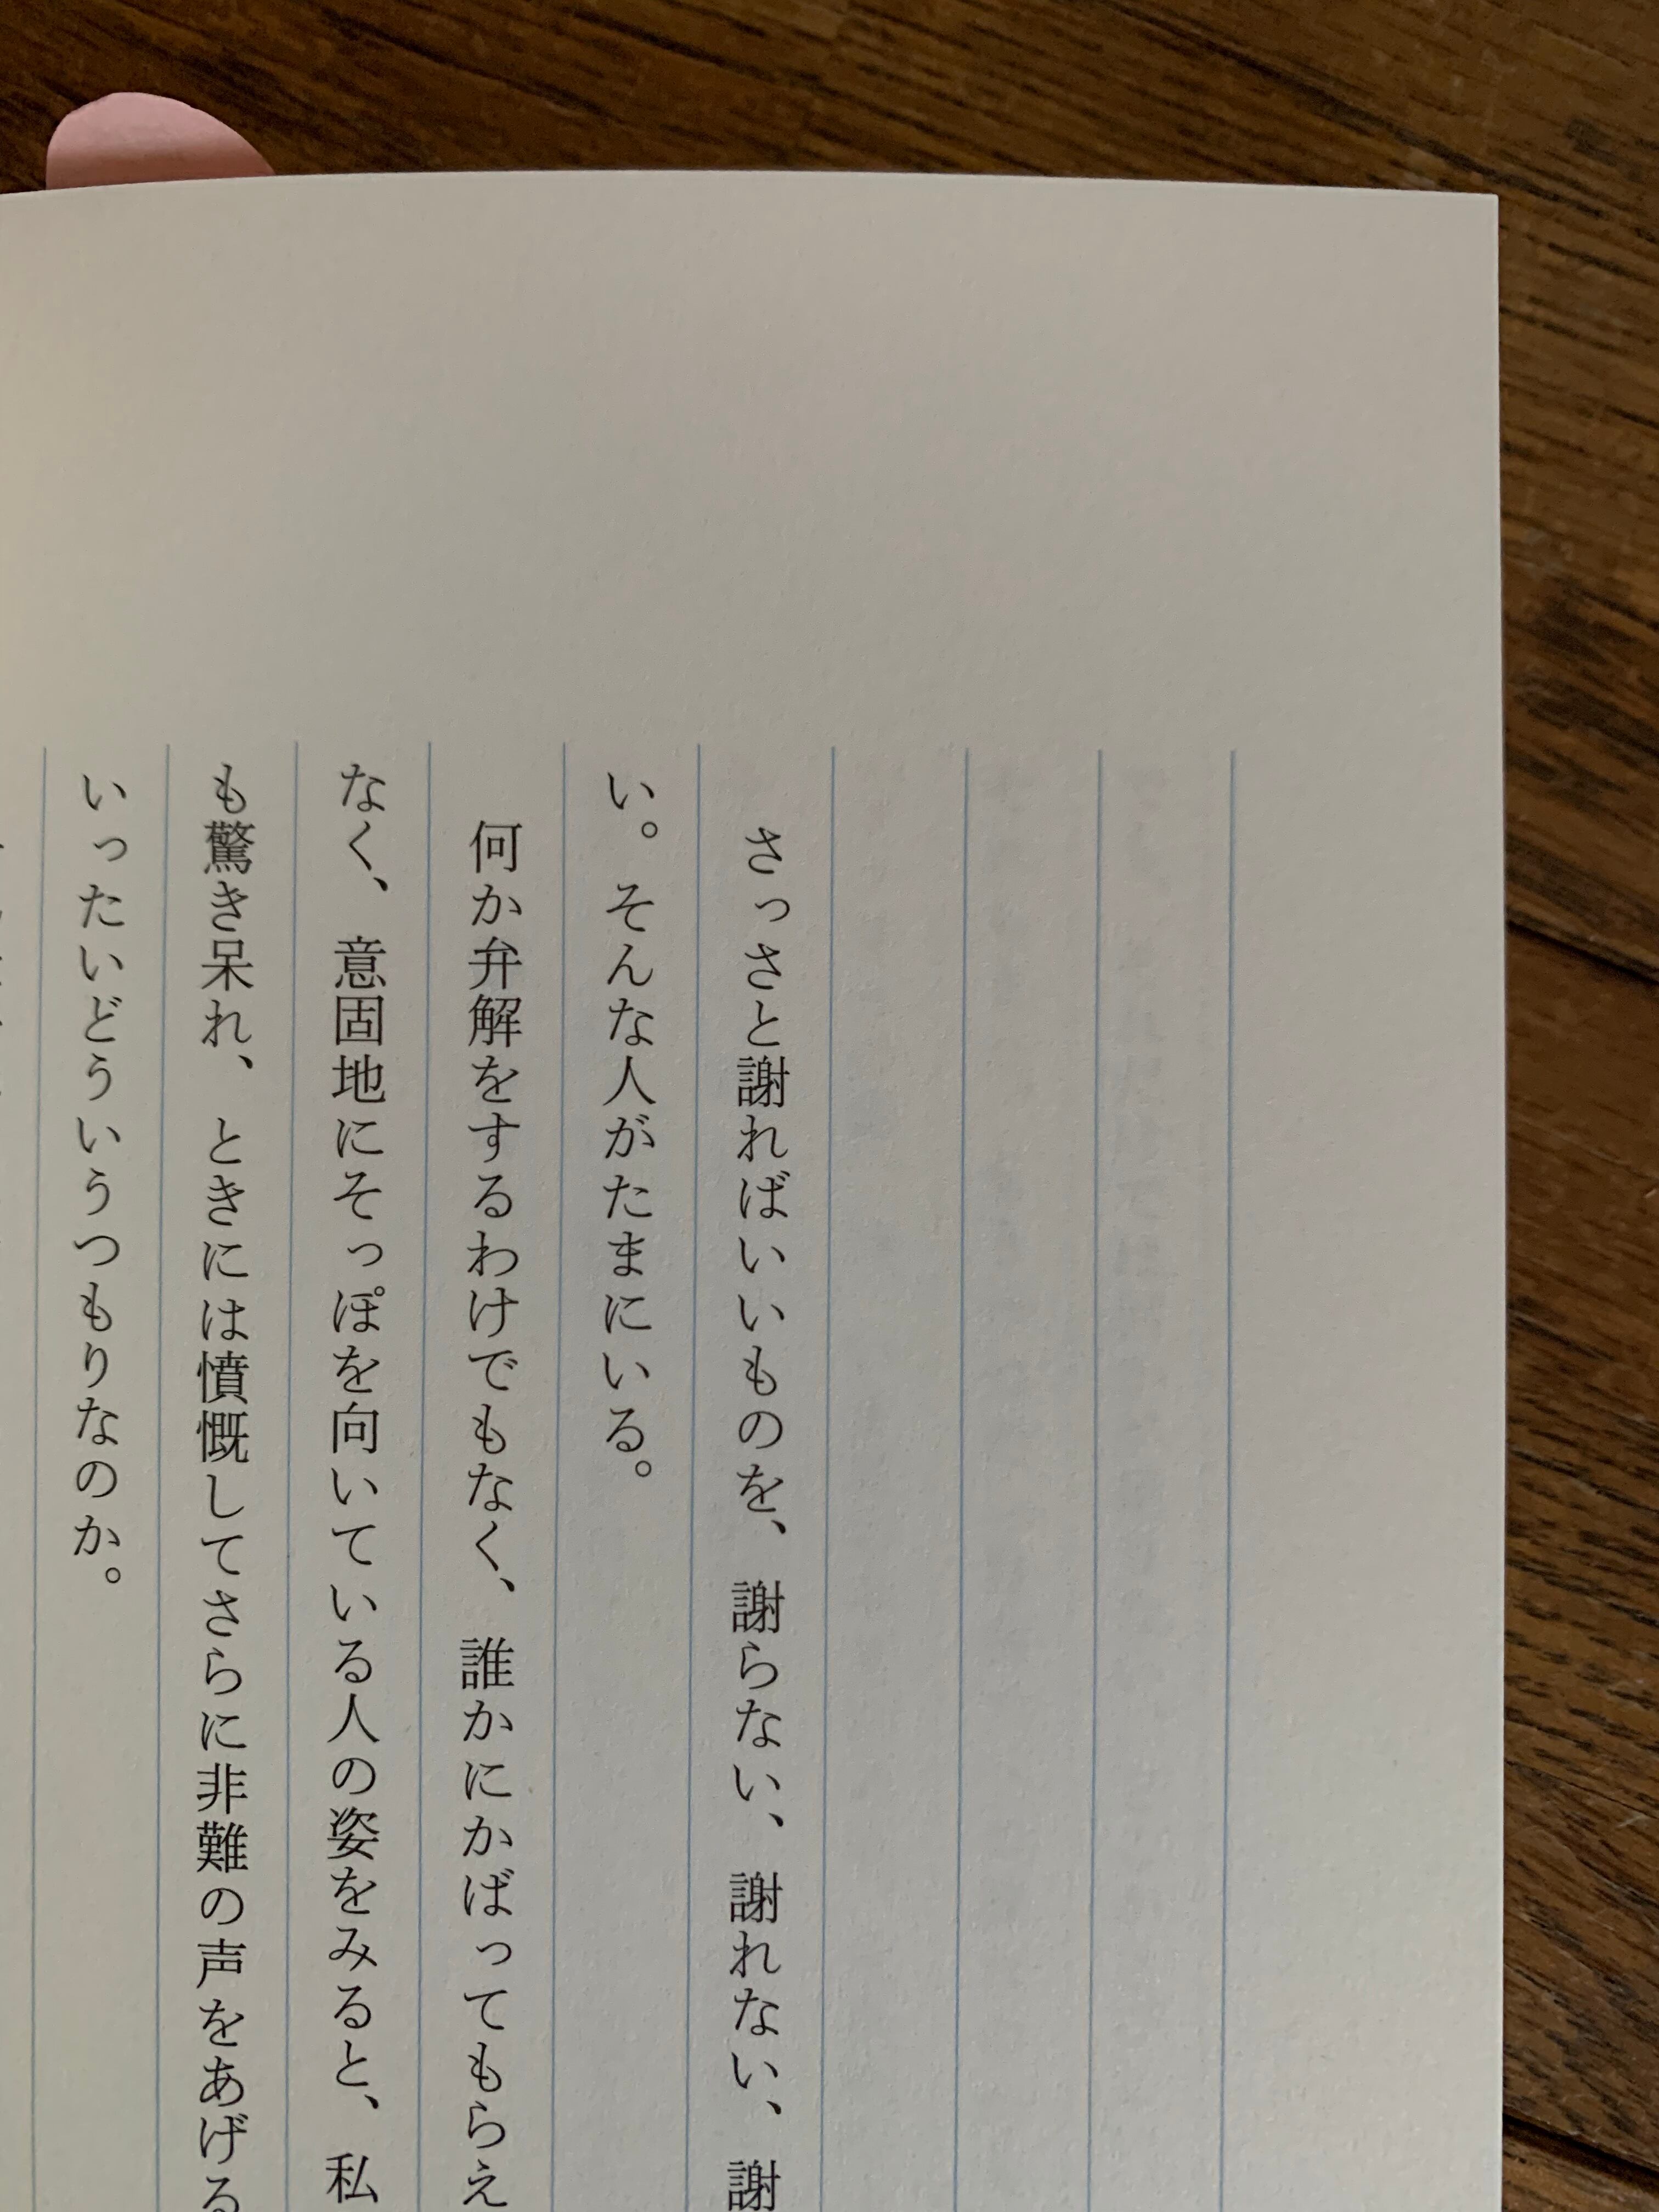 さっさと謝ればいいものを、謝らない、謝れない、謝
い。そんな人がたまにいる。
何か弁解をするわけでもなく、誰かにかばってもらえ
なく、意固地にそっぽを向いている人の姿をみると、私
も驚き呆れ、ときには憤慨してさらに非難の声をあげる
いったいどういうつもりなのか。